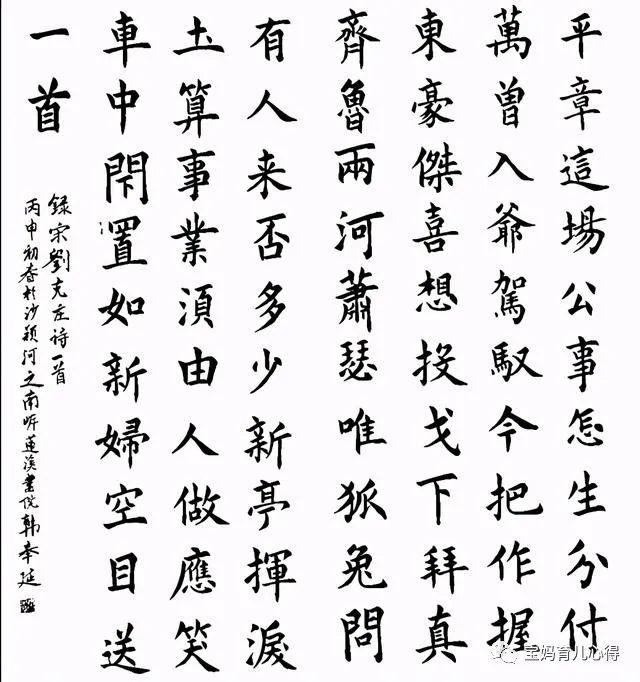 平章這場公事怎生分付
萬曾入爺駕馭今把作握
東豪傑喜想投戈下拜真
齊魯兩河蕭瑟唯狐兔問
有人来否多少新亭揮淚
圡算事業須由人做應笑
車中閇置如新婦空目送
一首
録宋劉克庄诗一首
丙申初春於沙颍河之南蓮溪書院韓奉延
宝妈育儿心得